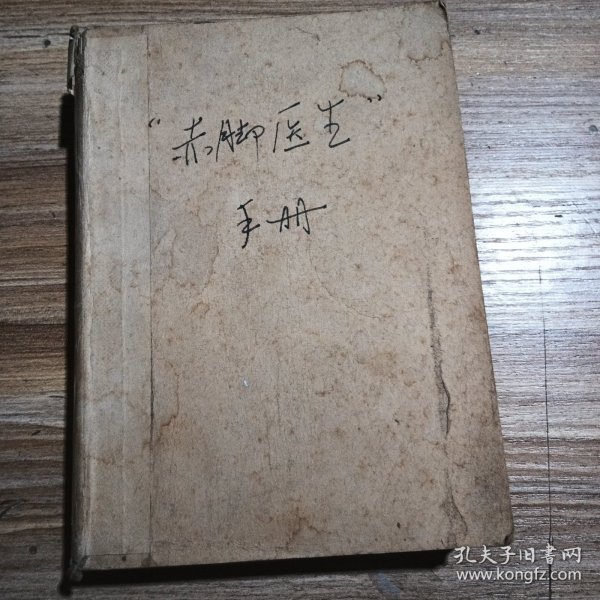 “赤脚医生”
手册
孔夫子旧書网
www.kongfz.com